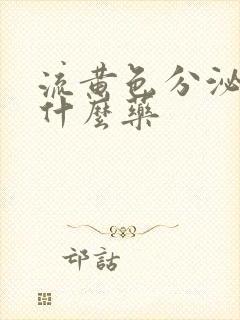 流黄色分泌
什麼藥
邙話